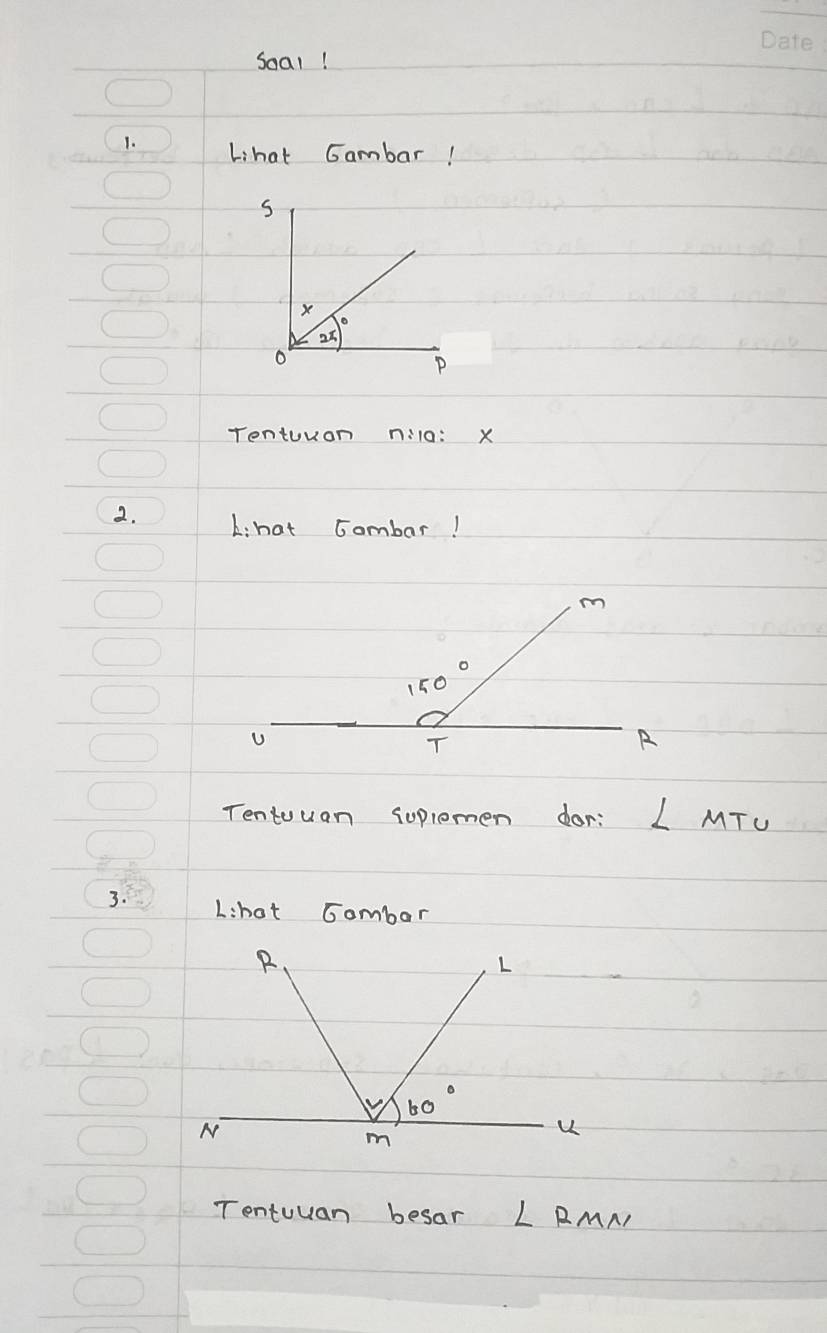 Date
Soal !
1. Lihat Gambar !
S
x
25°
O
P
Tentukan nilai x
2. Lihat Gambar !
m
150°
U
T
R
Tentukan suplemen dari ∠ MTU
3. Lihat Gambar
R
L
60°
N
m
K
Tentukan besar ∠ RMN